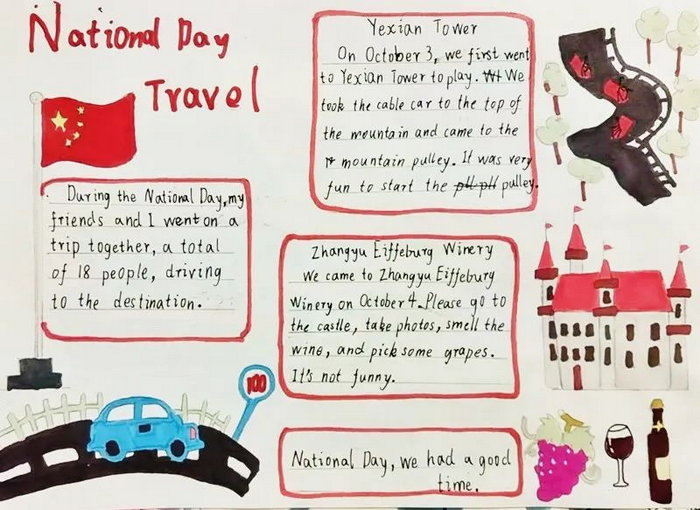 National Day
Travel
During the National Day, my
friends and I went on a
trip together, a total
of 18 people, driving
to the destination.
100
Yexian Tower
On October 3, we first went
to Yexian Tower to play. We
took the cable car to the top of
the mountain and came to the
mountain pulley. It was very
fun to start the pulley.
Zhangyu Eiffeburg Winery
We came to Zhangyu Eiffeburg
Winery on October 4. Please go to
the castle, take photos, smell the
wine, and pick some grapes.
It's not funny.
National Day, we had a good
time.